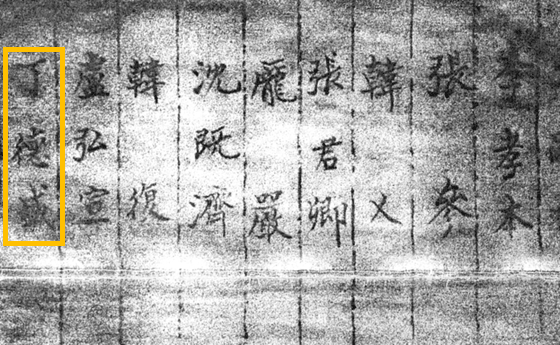 李孝本
張參
韓乂
張君卿
龐嚴
沈既濟
韓復
盧弘宣
丁德